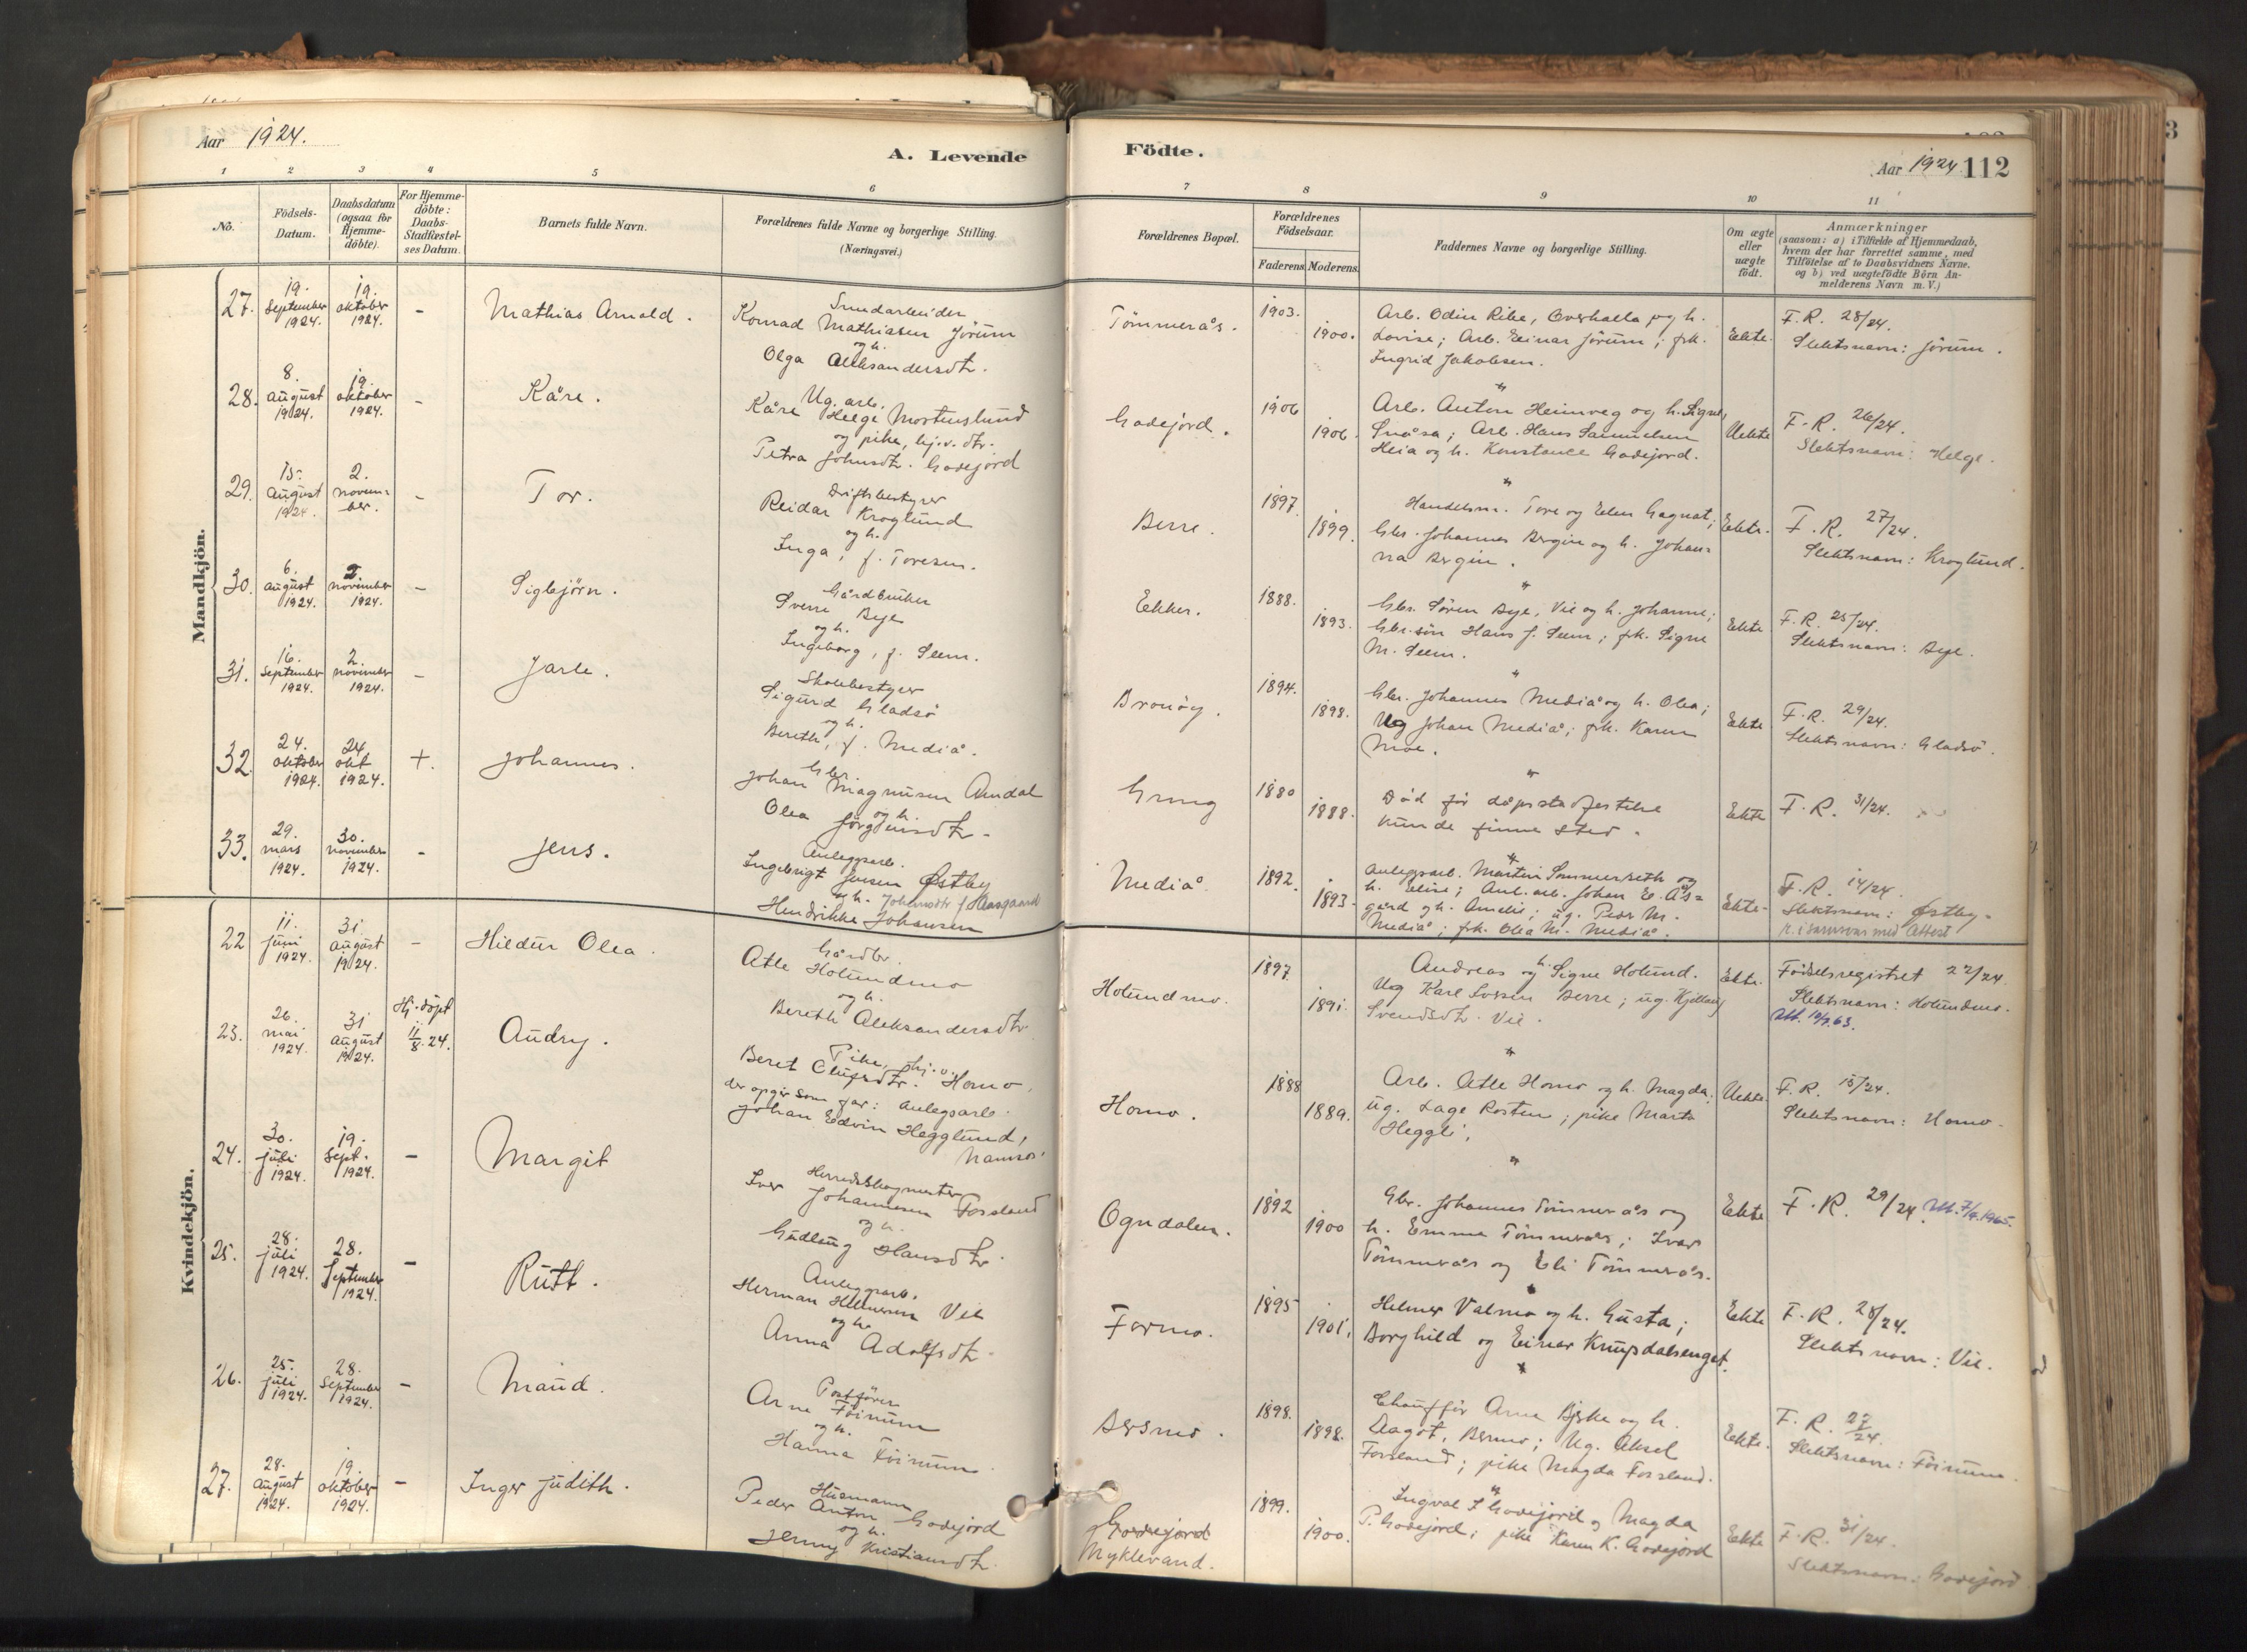 Aar 1924.
A. Levende
Födte.
Aar 1924 112
1 2 3 4 5 6
7 8 9 10 11
No.
Födsels-
Datum.
Daabsdatum
(ogsaa for
Hjemme-
döbte).
For Hjemme-
döbte:
Daabs-
Stadfæstel-
ses Datum.
Barnets fulde Navn.
Forældrenes fulde Navne og borgerlige Stilling.
(Næringsvei.)
Forældrenes Bopæl.
Forældrenes
Födselsaar.
Faderens. Moderens.
Faddernes Navne og borgerlige Stilling.
Om ægte
eller
uægte
födt.
Anmærkninger
(saasom: a) i Tilfælde af Hjemmedaab,
hvem der har forrettet samme, med
Tilföielse af to Daabsvidners Navne,
og b) ved uægtefödte Börn An-
melderens Navn m. V.)
Mandkjön.
27. 19. September 1924. 19. oktober 1924. - Mathias Arnold.
Konrad Mathiasen Jörum
og h.
Olga Aleksandersdtr.
Tömmerås. 1903. 1900.
Arb. Odin Ribe, Overhalla og h.
Lovise; Arb. Einar Jörum; frk.
Ingrid Jakobsen.
Ekte.
F.R. 28/24.
Slektsnavn: Jörum.
28. 8. august 1924. 19. oktober 1924. - Kåre.
Ug. arb.
Kåre Helge Mortenslund
og pike, hj.v. dtr.
Petra Johnsdtr. Godejord
Godejord. 1906 1906.
Arb. Anton Heimveg og h. Signe,
Snåsa; Arb. Hans Samuelsen
Heia og h. Konstance Godejord.
Uekte
F.R. 26/24.
Slektsnavn: Helge.
29. 15. august 1924. 2. novem-
ber. - Tor.
Driftsbestyrer
Reidar Kroglund
og h.
Inga, f. Toresen.
Berre. 1897. 1899.
Handelsm. Tore og Ellen Gagnat;
Gbr. Johannes Bergin og h. Johan-
na Bergin.
Ekte.
F.R. 27/24.
Slektsnavn: Kroglund.
30. 6. august 1924. 2 november 1924. - Sigbjörn.
Gårdbruker
Sverre Bye
og h.
Ingeborg, f. Seem.
Ekker. 1888. 1893.
Gbr. Sören Bye, Vie og h. Johanne;
Gbr.sön Hans J. Seem; frk. Signe
M. Seem.
Ekte
F.R. 25/24.
Slektsnavn: Bye.
31. 16. September 1924. 2. november 1924. - Jarle.
Skolebestyrer
Sigurd Gladsö
og h.
Bereth, f. Mediå.
1894. 1898.
Gbr. Johannes Mediå og h. Olea;
Ug Johan Mediå; frk. Karen
Moe.
Ekte
F.R. 29/24.
Slektsnavn: Gladsö.
32. 24. oktober 1924. 24 okt 1924. +. Johannes.
Gbr.
Johan Magnusen Aundal
og h.
Olea Jörgensdtr.
Grung 1880 1888.
Död för dåpsstadfestelse
kunde finne sted.
Ekte
F.R. 31/24.
33. 29. mars 1924. 30. november 1924. - Jens.
Anleggsarb.
Ingebrigt Jensen Østby
og h. Johansdtr f. Aasgaard
Hendrikke Johansen
Mediå. 1892. 1893.
Anleggsarb. Martin Sommerseth og
h. Eline; Anl. arb. Johan E. Ås-
gård og h. Amelie; ug. Peder M.
Mediå; frk. Olea M. Mediå.
Ekte.
F.R. 14/24.
Slektsnavn: Østby.
r. i samsvar med Attest
Kvindekjön.
22 11. juni 1924. 31. august 1924. - Hildur Olea.
Gårdbr.
Atle Holundmo
og h.
Bereth Aleksandersdtr.
Holundmo. 1897. 1891.
Andreas og h. Signe Holund.
Ug Karl Larsen Berre; ug. Kjellaug
Svendsdtr. Vie.
Ekte.
Födselsregistret 22/24.
Slektsnavn: Holundmo.
Utt. 10/9.63.
23. 26. mai 1924. 31 august 1924. Hj. döpt 11/8.24. Audny.
Pike, hj.v.
Beret Olufsdtr. Homo.
der opgir som far: anlegsarb.
Johan Edvin Hegglund,
Namsos.
Homo. 1888 1889.
Arb. Atle Homo og h. Magda;
ug. Lage Rosten; pike Marta
Heggli.
Uekte.
F.R. 15/24.
Slektsnavn: Homo.
24. 30. juli 1924. 19. Sept. 1924. - Margit
Herredsskogmester
Iver Johannesen Forsland
og h.
Gudlaug Hansdtr.
Ogndalen. 1892 1900
Gbr. Johannes Tömmerås og
h. Emma Tömmerås; Ivar
Tömmerås og Eli Tömmerås.
Ekte
F.R. 29/24. Utt. 7/9.1965.
25. 28. juli 1924. 28. September 1924. - Ruth.
Anleggsarb.
Herman Vie
og h.
Anna Adolfsdtr.
Formo. 1895 1901.
Helmer Valmo og h. Gusta;
Borghild og Einar Krupdalsenget.
Ekte
F.R. 28/24.
Slektsnavn: Vie.
26. 25. juli 1924. 28. September 1924. - Maud.
Postförer
Arne Föinum
og h.
Hanna Föinum.
Bersmo. 1898. 1898.
Chaufför Arne Bjøke og h.
Dagot, Bermo; Ug. Aksel
Forsland; pike Magda Forsland.
Ekte.
F.R. 27/24.
Slektsnavn: Föinum.
27. 28. august 1924. 19. oktober 1924. - Inger Judith.
Husmann
Peder Anton Godejord
og h.
Jenny Kristiansdtr.
Godejord
Myklevand. 1899. 1900.
Ingval Godejord og Magda
P. Godejord; pike Karen K. Godejord
Ekte
F.R. 31/24.
Slektsnavn: Godejord.